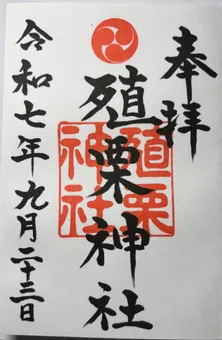 奉拝
殖栗神社
殖栗
神社
令和七年九月二十三日